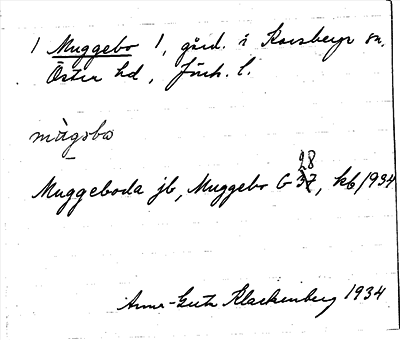 / Muggebo /, gård. i Korsberga sn,
Öster hd, Jönk. l.
mùgobo
Muggeboda jb, Muggebo G 37, kb/1934
28
Anna-Greta Klackenberg 1934